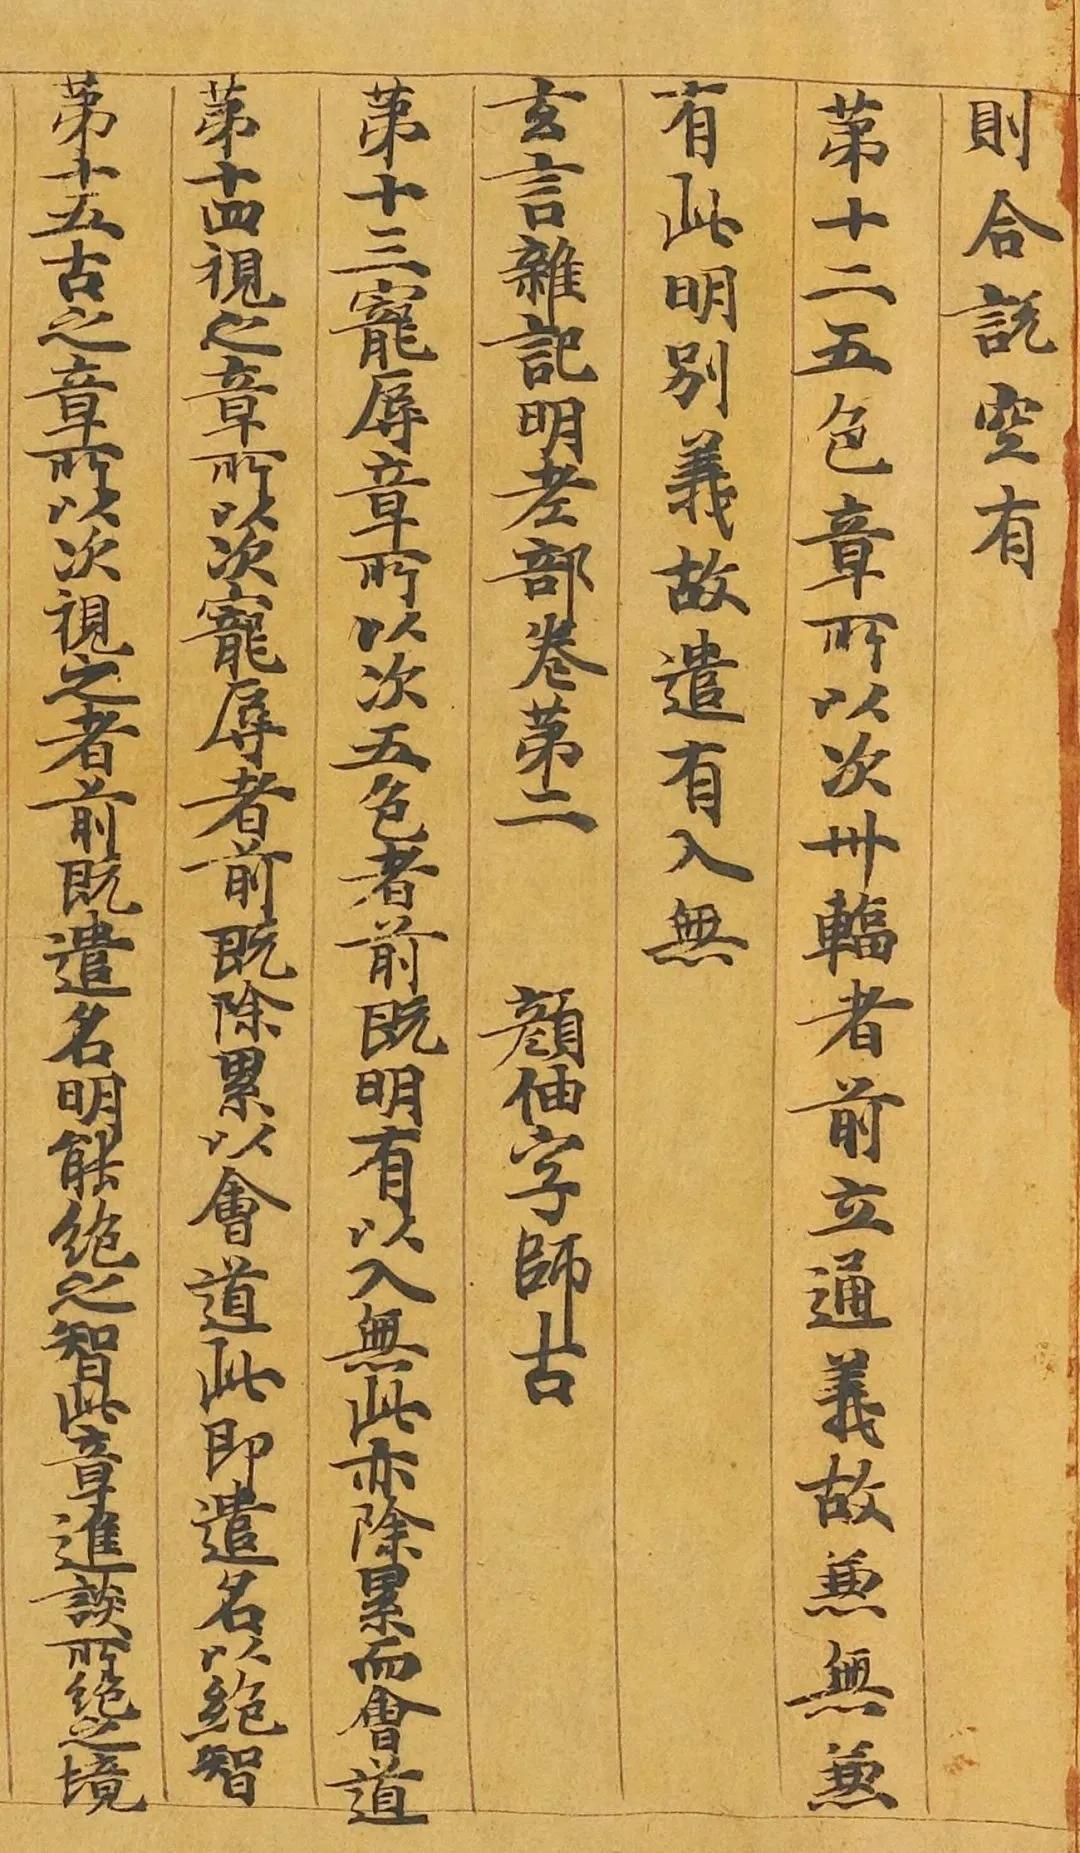 則合説空有
苐十二五色章所以次卅輻者前立通義故兼無兼
有此明別義故遣有入無
玄言雜記明老部卷苐二 顏伷字師古
苐十三寵辱章所以次五色者前既明有以入無此亦除累而會道
苐十四視之章所以次寵辱者前既除累以會道此即遣名以絶智
苐十五古之章所以次視之者前既遣名明能絶之智此章進談所絶之境